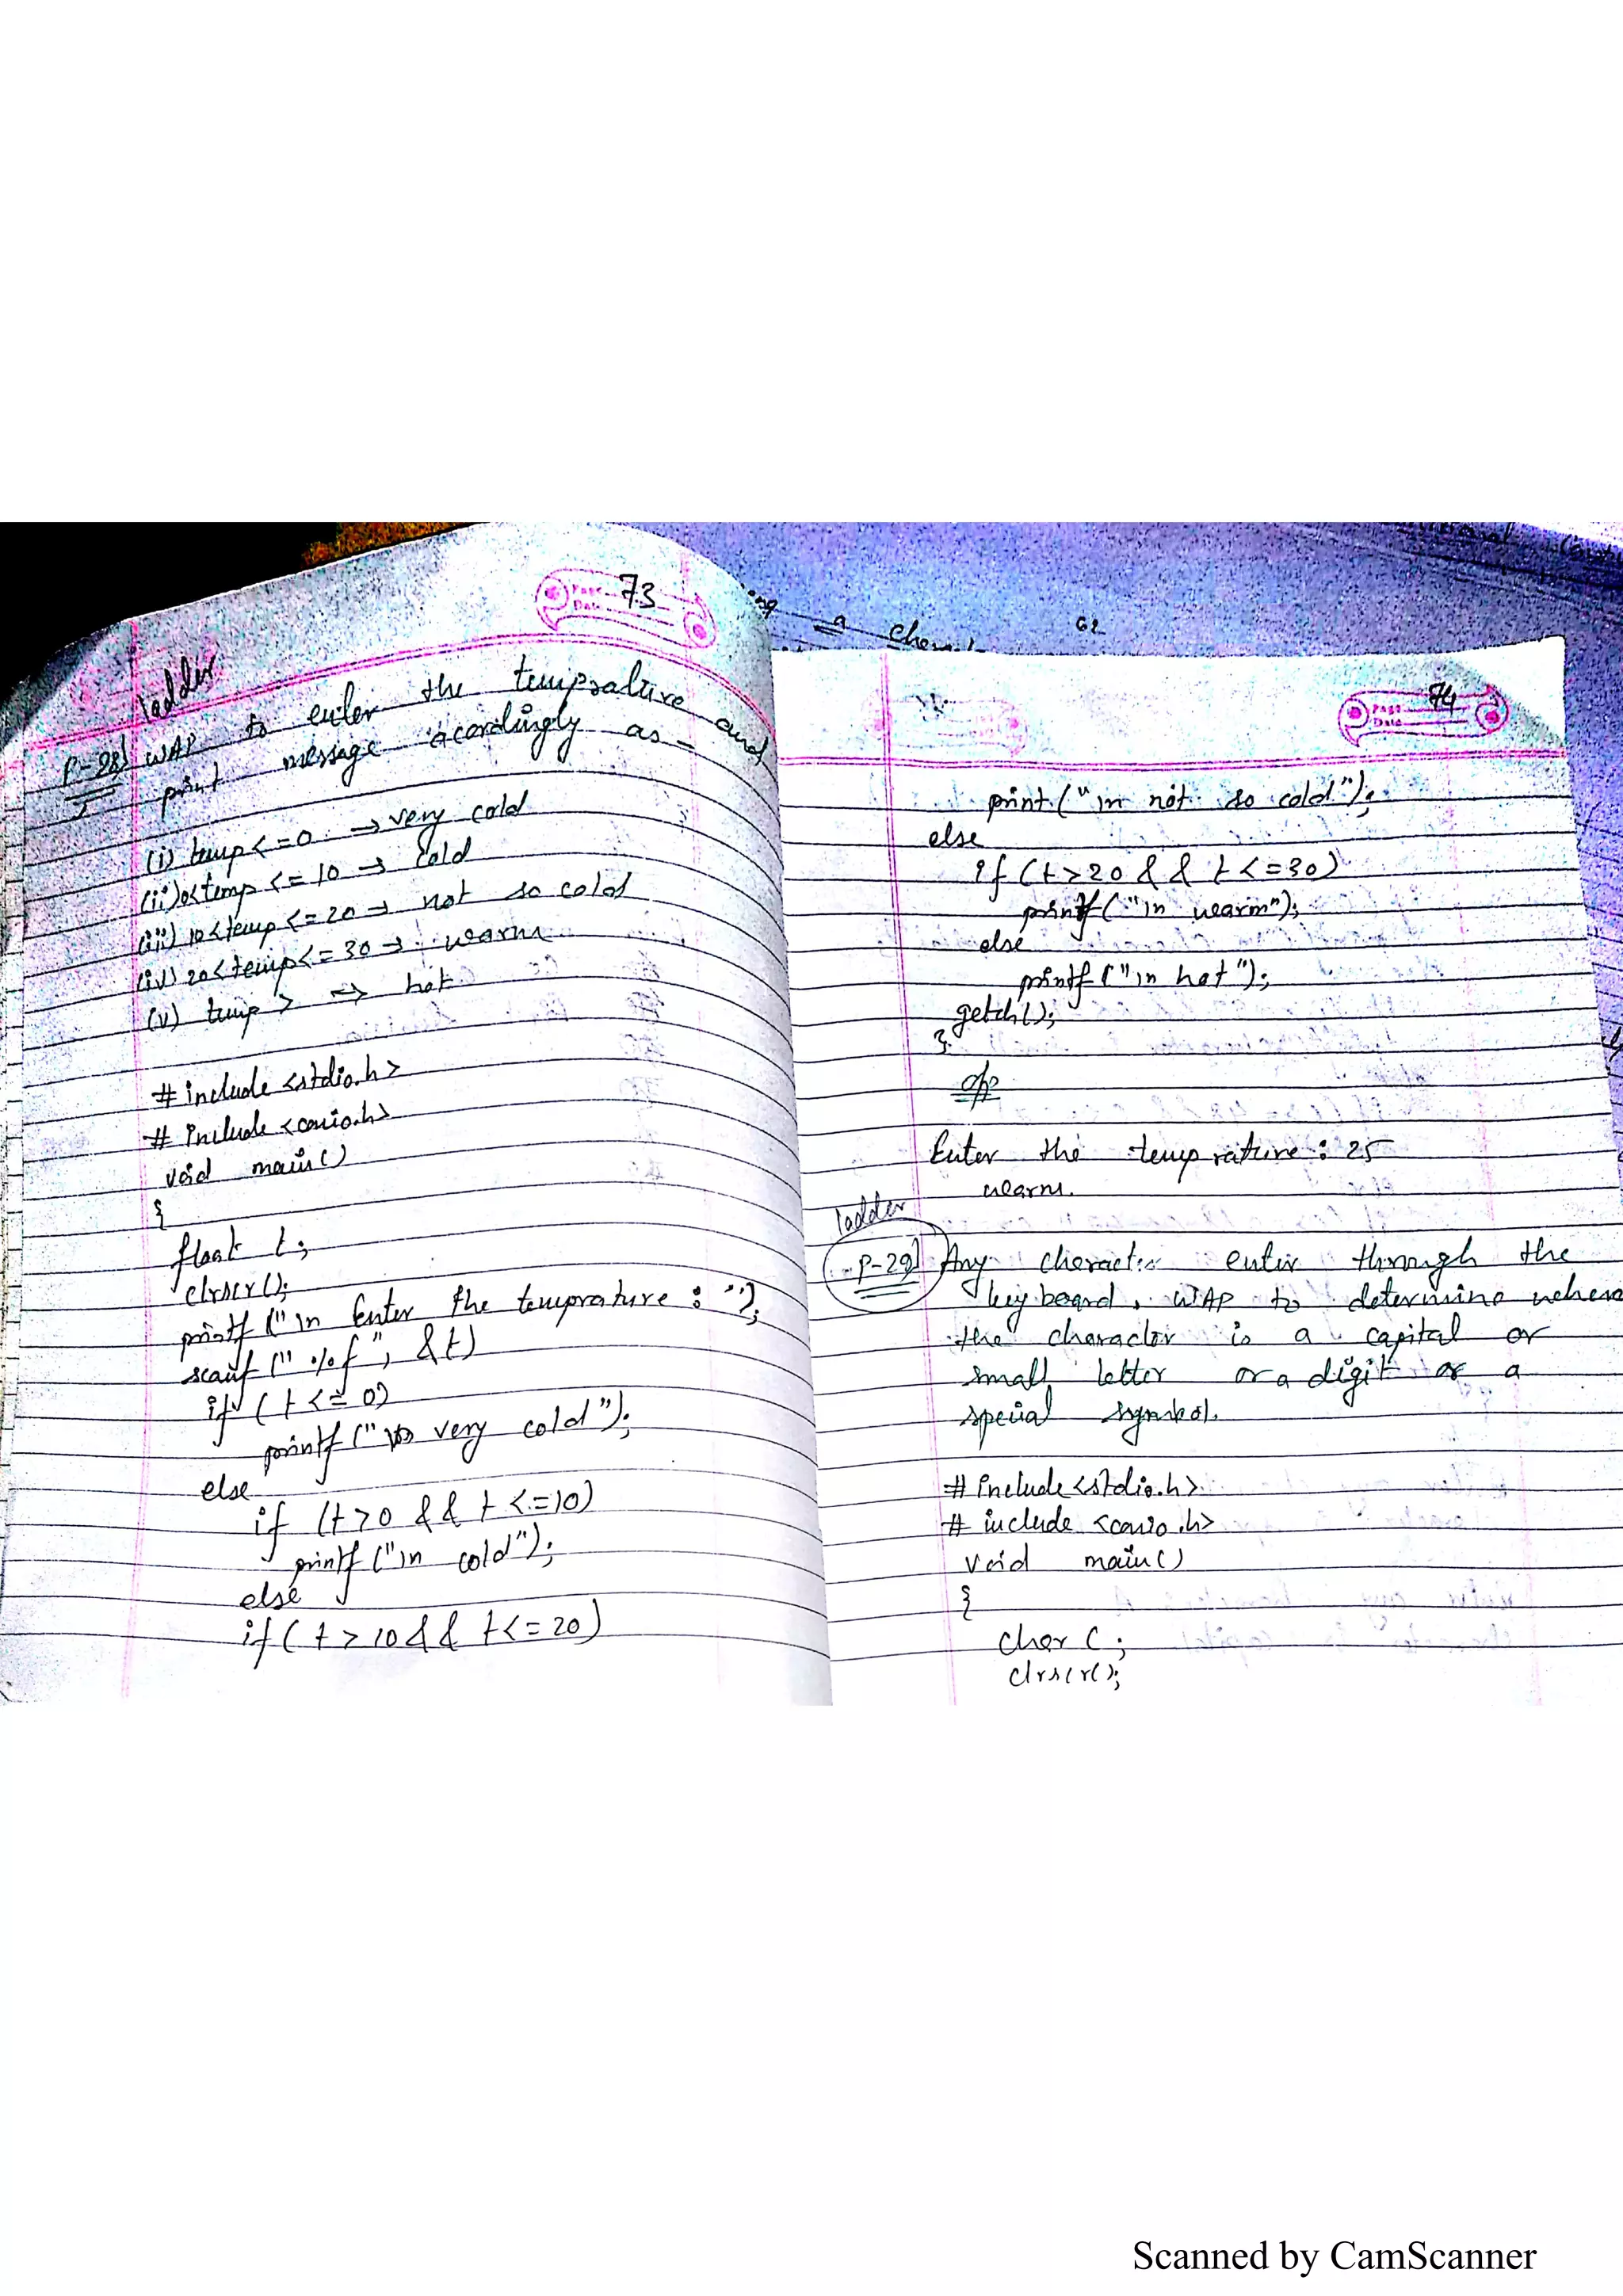 Page 73
Date
ladder
P-28] WAP to enter the temprature and
print message acordingly as -
(i) temp <= 0 → very cold
(ii) 0< temp <= 10 → Cold
(iii) 10 < temp <= 20 → not so cold
(iv) 20 < temp <= 30 → warm
(v) temp > => hot
# include <stdio.h>
# include <conio.h>
void main()
{
float t;
clrscr();
printf ("\n Enter the temprature : ");
scanf (" %f ", &t)
if (t <= 0)
printf (" very cold");
else
if (t>0 && t <=10)
printf ("\n cold");
else
if ( t > 10 && t<= 20)
a
62
Page 74
Date
print ("\n not so cold");
else
if (t>20 && t <=30)
printf ("\n warm");
else
printf ("\n hot");
getch();
}
o/p
Enter the temprature : 25
warm.
ladder
P-29] Any character enter through the
key board, WAP to determine
the character is a capital or
small letter or a digit or a
special symbol.
# include <stdio.h>
# include <conio.h>
void main()
{
char c ;
clrscr();
Scanned by CamScanner